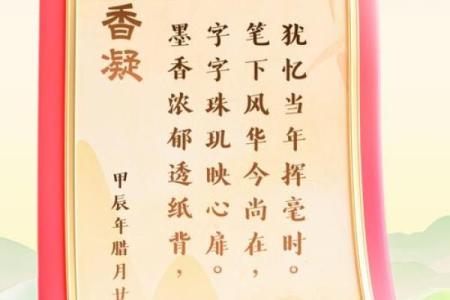 香凝
墨香浓郁透纸背，
字字珠玑映心扉。
笔下风华今尚在，
犹忆当年挥毫时。
甲辰年腊月廿